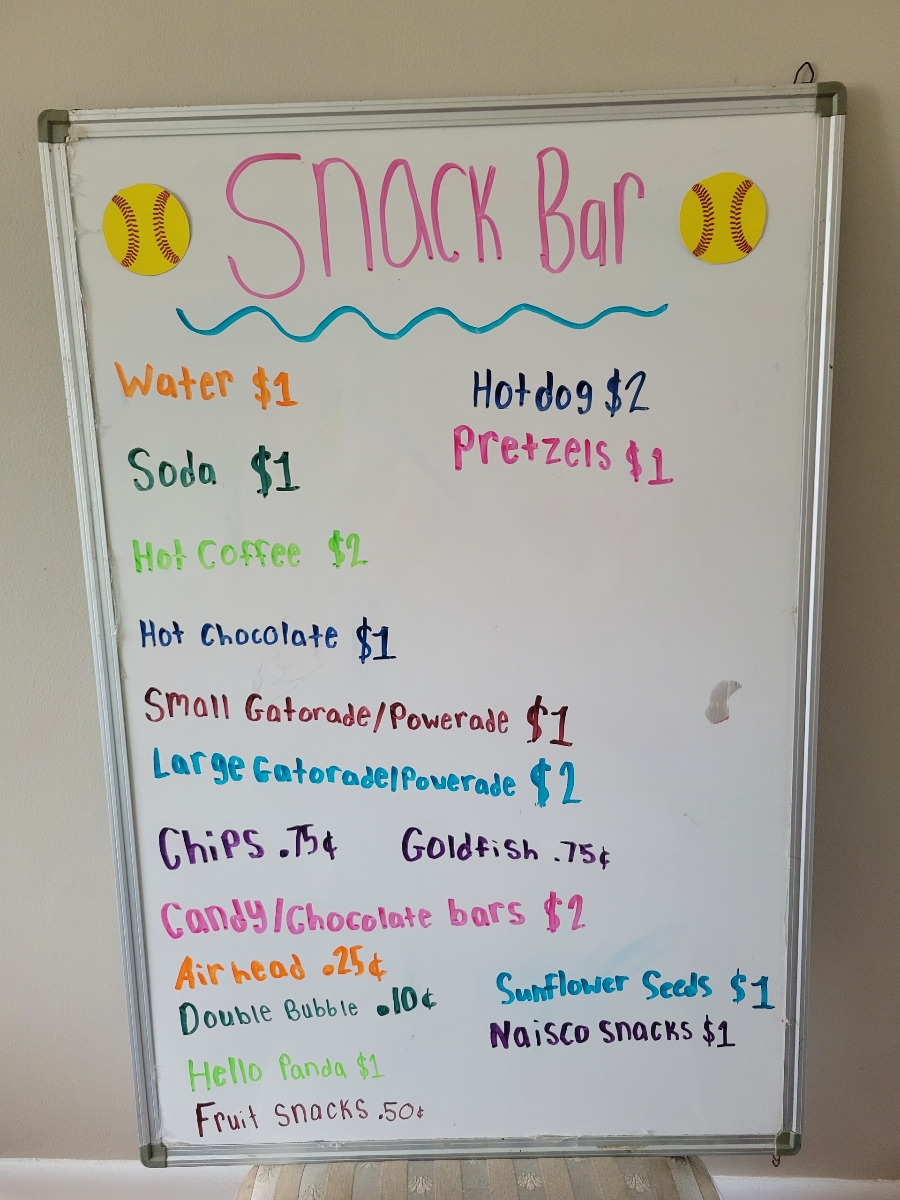 Snack Bar
Water $1
Hotdog $2
Pretzels $1
Soda $1
Hot Coffee $2
Hot Chocolate $1
Small Gatorade/Powerade $1
Large Gatorade/Powerade $2
Chips .75¢ Goldfish .75¢
Candy/Chocolate bars $2
Airhead .25¢
Sunflower Seeds $1
Double Bubble .10¢
Naisco snacks $1
Hello Panda $1
Fruit snacks .50¢